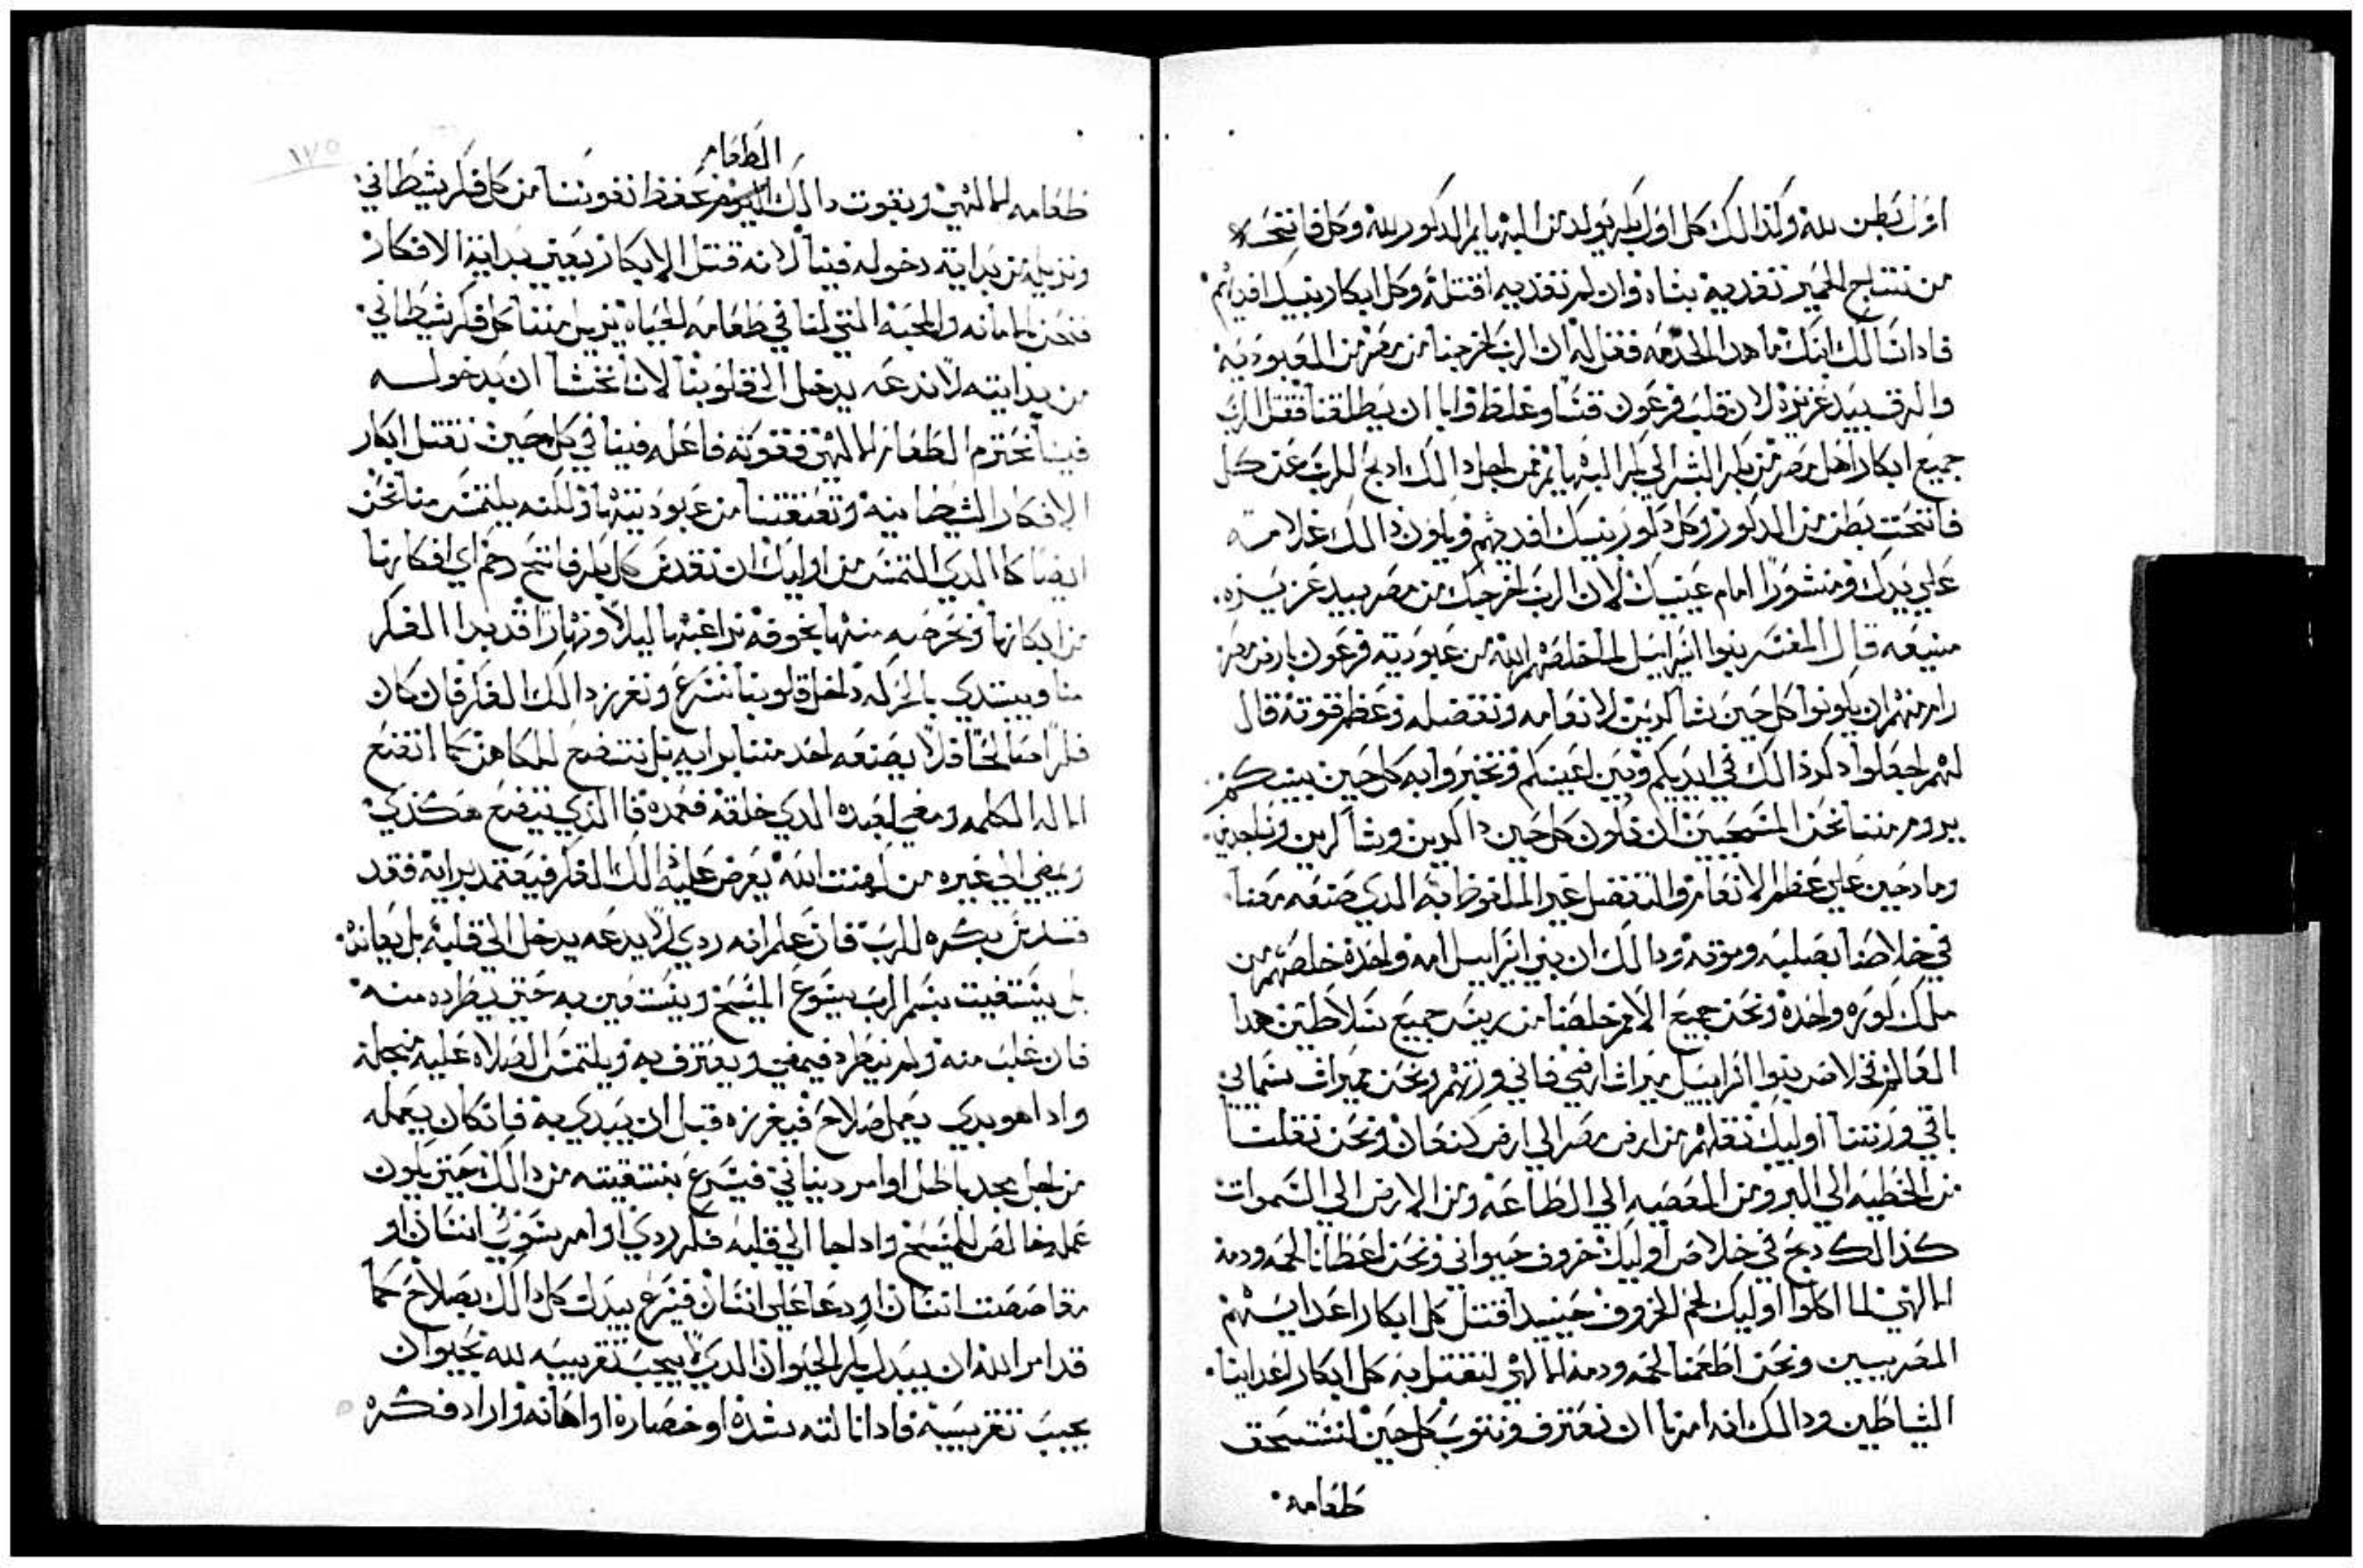 اول بطن لله وكذالك كل اول بكر يولد من البهايم الدكور لله وكل فاتح
من نتتاج الحمير تفديه بشاه وان لم تفديه اقتله وكل ابكار بنيك افديهم
فادا سالك ابنك ما هده الخدمه فقل له ان الرب اخرجنا من مصر من العبوديه
والرق بيد عزيزه لان قلب فرعون قسا وغلظ وابا ان يطلقنا فقتل الرب
جميع ابكار اهل مصر من بكر البشر الي بكر البهايم فمن اجل دالك ادبح للرب عن كل
فاتحت بطن من الدكور وكل دكور بنيك افديهم ويكون دالك علامه
علي يدك ومنشورًا امام عينيك لان الرب اخرجك من مصر بيد عزيزه
منيعه قال المفسر بنوا اسراييل لما خلصهم الله من عبودية فرعون بارض مصر
رام منهم ان يكونوا كل حين شاكرين لانعامه وتفضله وعظم قوته قال
لهم اجعلوا دكر ذالك في ايديكم وبين اعينكم وتخبروا به كل حين بينكم
يروم مننا نحن المسيحيين ان نكون كل حين داكرين وشاكرين وساجدين
ومادحين علي عظم الانعام والتفضل غير الملفوظ به الدي صنعه معنا
في خلاصنا بصلبه وموته ودالك ان بني اسراييل امه واحده خلصهم من
ملك كوره واحده ونحن جميع الامم خلصنا من يد جميع سلاطين هدا
العالم في خلاص بنوا اسراييل ميرات ارضي فاني ورتهم ونحن ميرات سماني
باقي ورتنا اوليك نقلهم من ارض مصر الي ارض كنعان ونحن نقلنا
من الخطيه الي البر ومن المعصيه الي الطاعه ومن الارض الي السموات
كذالك دبح في خلاص اوليك خروف حيواني ونحن اعطانا لحمه ودمه
الالهي لما اكلوا اوليك لحم الخروف حينيد قتل كل ابكار اعدايهم
المصريين ونحن اطعمنا لحمه ودمه الالهي لنقتل به كل ابكار اعداينا
الشياطين ودالك انه امرنا ان نعترف ونتوب كل حين لنستحق
طعامه
الطعام
طعامه الالهي وبقوت دالك نحفظ نفوسنا من كل فكر شيطاني
ونزيله من بداية دخوله فينا لانه قتل الابكار يعني بداية الافكار
فنحن بالامانه والمحبه التي لنا في طعامه المحياه نزيل مننا كل فكر شيطاني
من بدايته لا ندعه يدخل الي قلوبنا لاننا نخشا ان بدخوله
فينا نحترم الطعام الالهي فقوته فاعله فينا في كل حين تقتل ابكار
الافكار الشيطانيه وتعتقنا من عبوديتها ولكنه يلتمس منا نحن
ايضا كالدي التمس من اوليك ان نقدس كل بكر فاتح رحم اي افكارنا
من ابكارها ونحرص منها بخوفه نراعيها ليلاً ونهارًا قد بدا الفكر
منا ويبتدي بالحركه داخل قلوبنا نسرع ونفرز دالك الفكر فان كان
فكرًا صالحًا فلا يصنعه احد مننا برايه بل نتضع للكاهن كما اتضع
الاله الكلمه ومضي لعبده الدي خلقه فعمده فالذي يتضع هكذي
ويمضي الي غيره من كهنت الله يعرض عليه دالك الفكر فيعتمد برايه فقد
قدس بكره للرب فان علم انه ردي لا يدعه يدخل الي قلبه بل يعانده
بل يستغيت بسم الرب يسوع المسيح ويستعين به حتي يطرده منه
فان غلب منه ولم يطرد فيمضي ويعترف به ويلتمس الصلاه عليه من اجله
وادا هو بدي يعمل صلاح فيفرزه قبل ان يبدي به فان كان يعمله
من اجل مجد باطل او امر دنياني فيسرع بتنقيته من دالك حتي يكون
عمله خالص للمسيح وادا جا الي قلبه فكر ردي او امر بسوء انسان او
مقاصصت انسان او دعا علي انسان فيسرع يبدل كل دالك بصلاح كما
قد امر الله ان يبدل بكر الحيوان الدي لا يجب تقريبه لله بحيوان
يجب تقريبه فادا نالته شده او خساره او اهانه واراد فكره